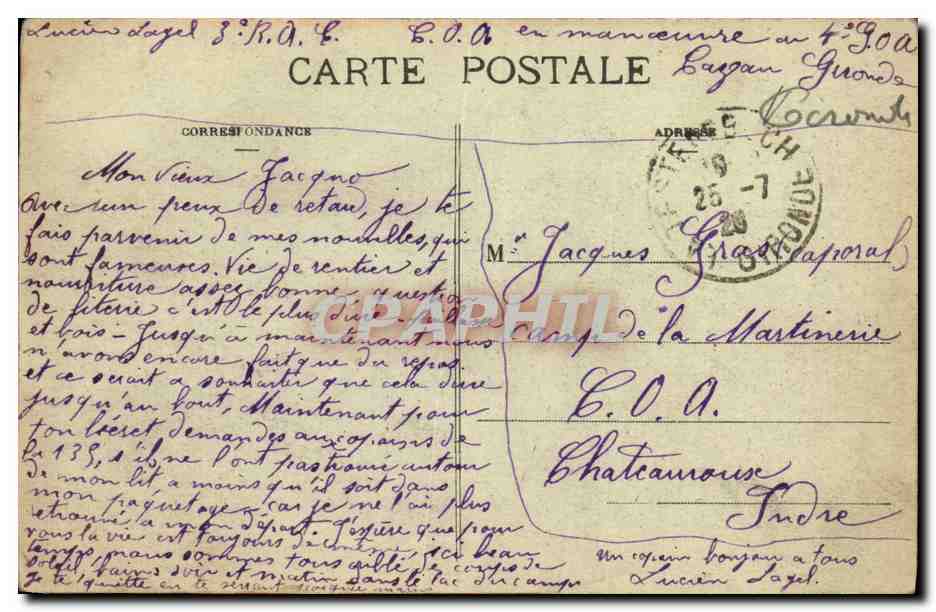 Lucien Lagel 3º R.A.C. C.O.A en manœuvre au 4º G.O.A
Cazeau Gironde
CARTE POSTALE
CORRESPONDANCE
ADRESSE
25 -7
GIRONDE
Mon vieux Jacquo
Avec un peux de retard, je te
fais parvenir de mes nouvelles, qui
sont fameuses. Vie de rentier et
nourriture assez bonne, question
de literie c'est le plus dure
et bois - Jusqu'à maintenant nous
n'avons encore fait que du repos
et ce serait a souhaiter que cela dure
jusqu'au bout, Maintenant pour
ton béret demandes aux copains de
la 135, s'ils ne l'ont pas trouvé autour
de mon lit a moins qu'il soit dans
mon paquetage - car je ne l'ai plus
retrouvé a mon départ. J'espère que pour
vous la vie est toujours de même, ici beau
temps, nous sommes tous
soleil, bains soir et matin dans le lac du camp
Je te quitte en te serrant
Mr Jacques Gras caporal
Camp de la Martinerie
C.O.A.
Chateauroux
Indre
un copain bonjour a tous
Lucien Lagel.
CPAPHIL